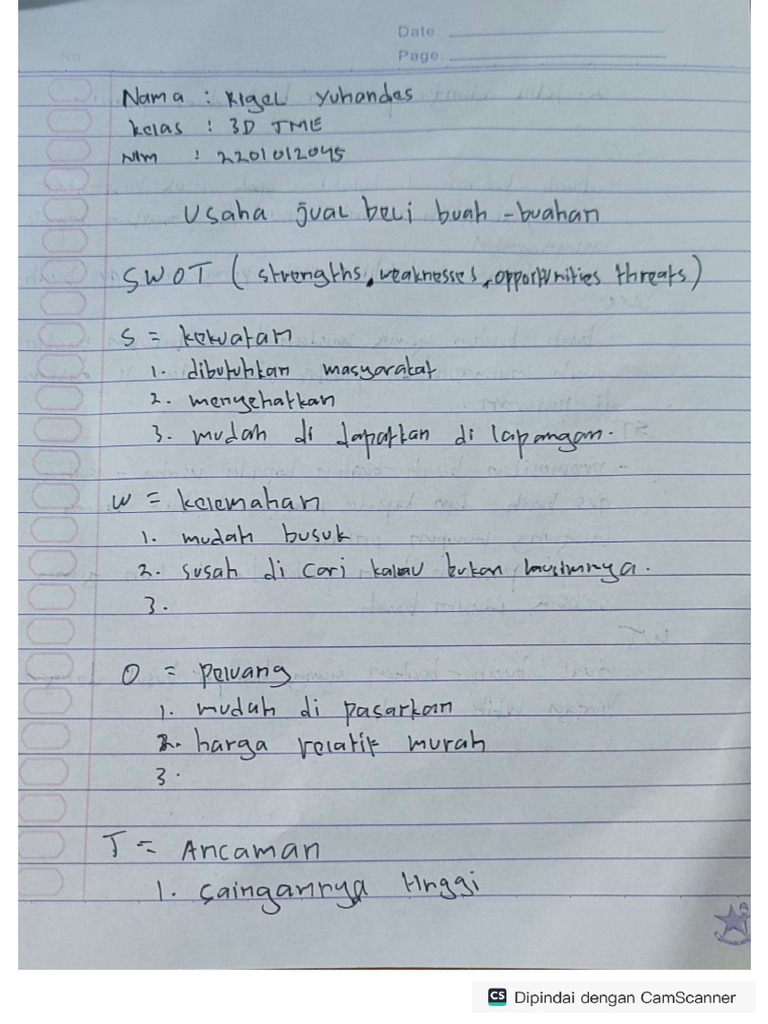 Date.
Page.
No
Nama : Rigel Yuhandes
kelas : 3D TME
Nim : 2201012045
Usaha jual beli buah - buahan
SWOT ( strengths, weaknesses, opportunities threats )
S = kekuatan
1. dibutuhkan masyarakat
2. menyehatkan
3. mudah di dapatkan di lapangan.
W = kelemahan
1. mudah busuk
2. susah di cari kalau bukan musimnya.
3.
O = peluang
1. mudah di pasarkan
2. harga relatif murah
3.
T = Ancaman
1. saingannya tinggi
CS Dipindai dengan CamScanner